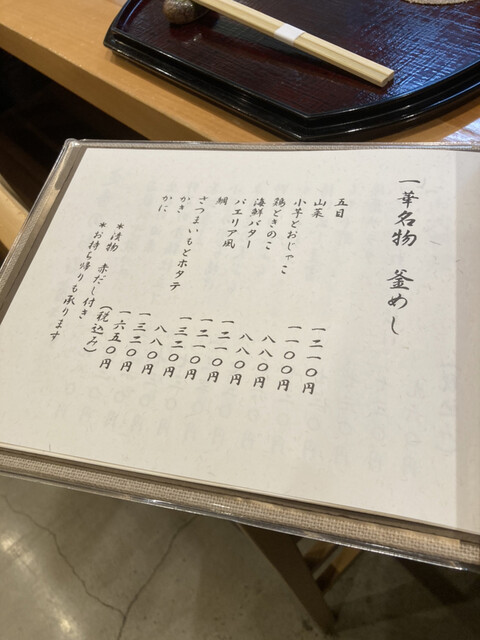 一華名物 釜めし
五目 一二一〇円
山菜 一一〇〇円
小芋とおじゃこ 八八〇円
鶏ときのこ 八八〇円
海鮮バター 一二一〇円
パエリア風 一二一〇円
鯛 一三二〇円
さつまいもとホタテ 八八〇円
かき 一三二〇円
かに 一六五〇円
(税込み)
*漬物 赤だし付き
*お持ち帰りも承ります